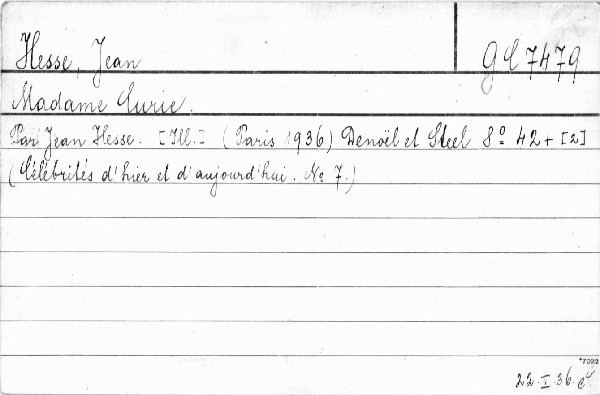 Hesse, Jean
GC 7479
Madame Curie.
Par Jean Hesse. [Ill.] (Paris 1936) Denoël et Steel 8º 42 + [2]
(Célébrités d'hier et d'aujourd'hui. No 7.)
*7022
22. I. 36.